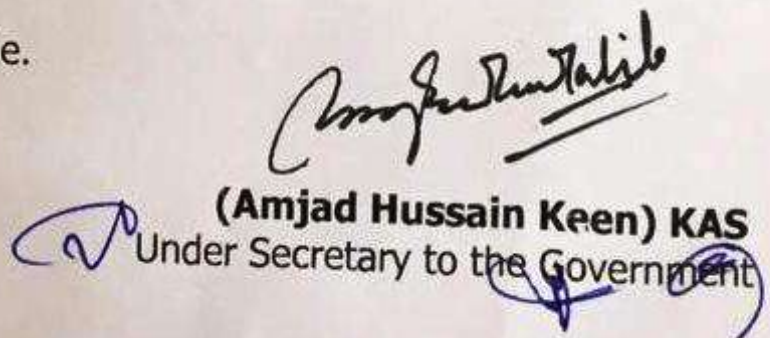 e.
(Amjad Hussain Keen) KAS
Under Secretary to the Government